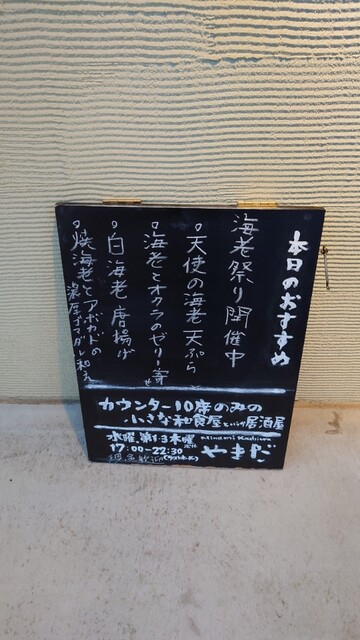 本日のおすすめ
海老祭り開催中
。天使の海老天ぷら
。海老とオクラのゼリー寄せ
。白海老唐揚げ
。焼海老とアボカドの
濃厚ゴマダレ和え
カウンター10席のみの
小さな和食屋という名の居酒屋
水曜、第1・3木曜
17:00-22:30
minami Kashiwa
やまだ